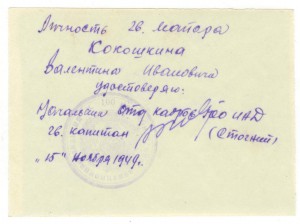 Личность гв. майора
Кокошкина
Валентина Ивановича
удостоверяю:
Начальник отд кадров
гв. капитан (Стогний)
"15" ноября 1949г.